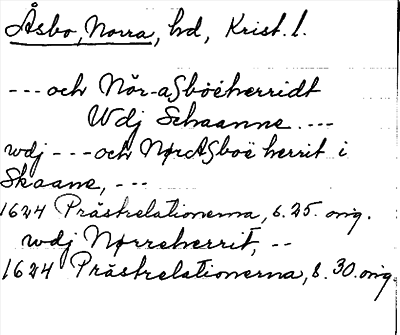 Åsbo, Norra, hd, Krist. l.
--- och Nör-aSboëherridt
Wdj Schaanne ---
wdj --- och NørASboë herrit i
Skaane, ---
1624 Prästrelationerna, s. 25. orig.
wdj Nørreherrit, --
1624 Prästrelationerna, s. 30. orig.